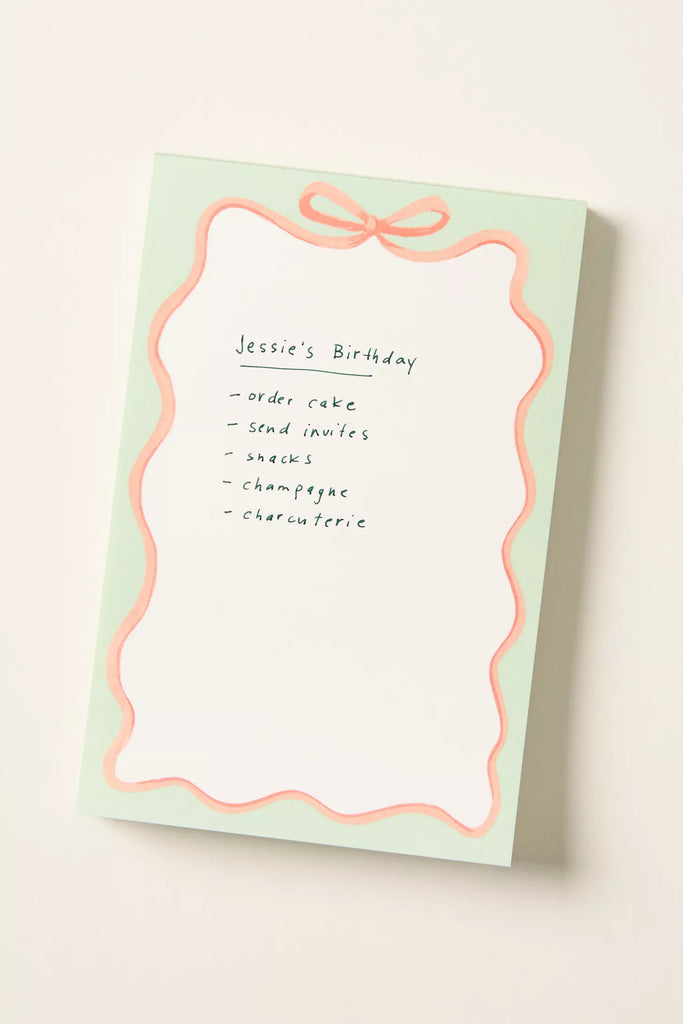 Jessie's Birthday
- order cake
- send invites
- snacks
- champagne
- charcuterie